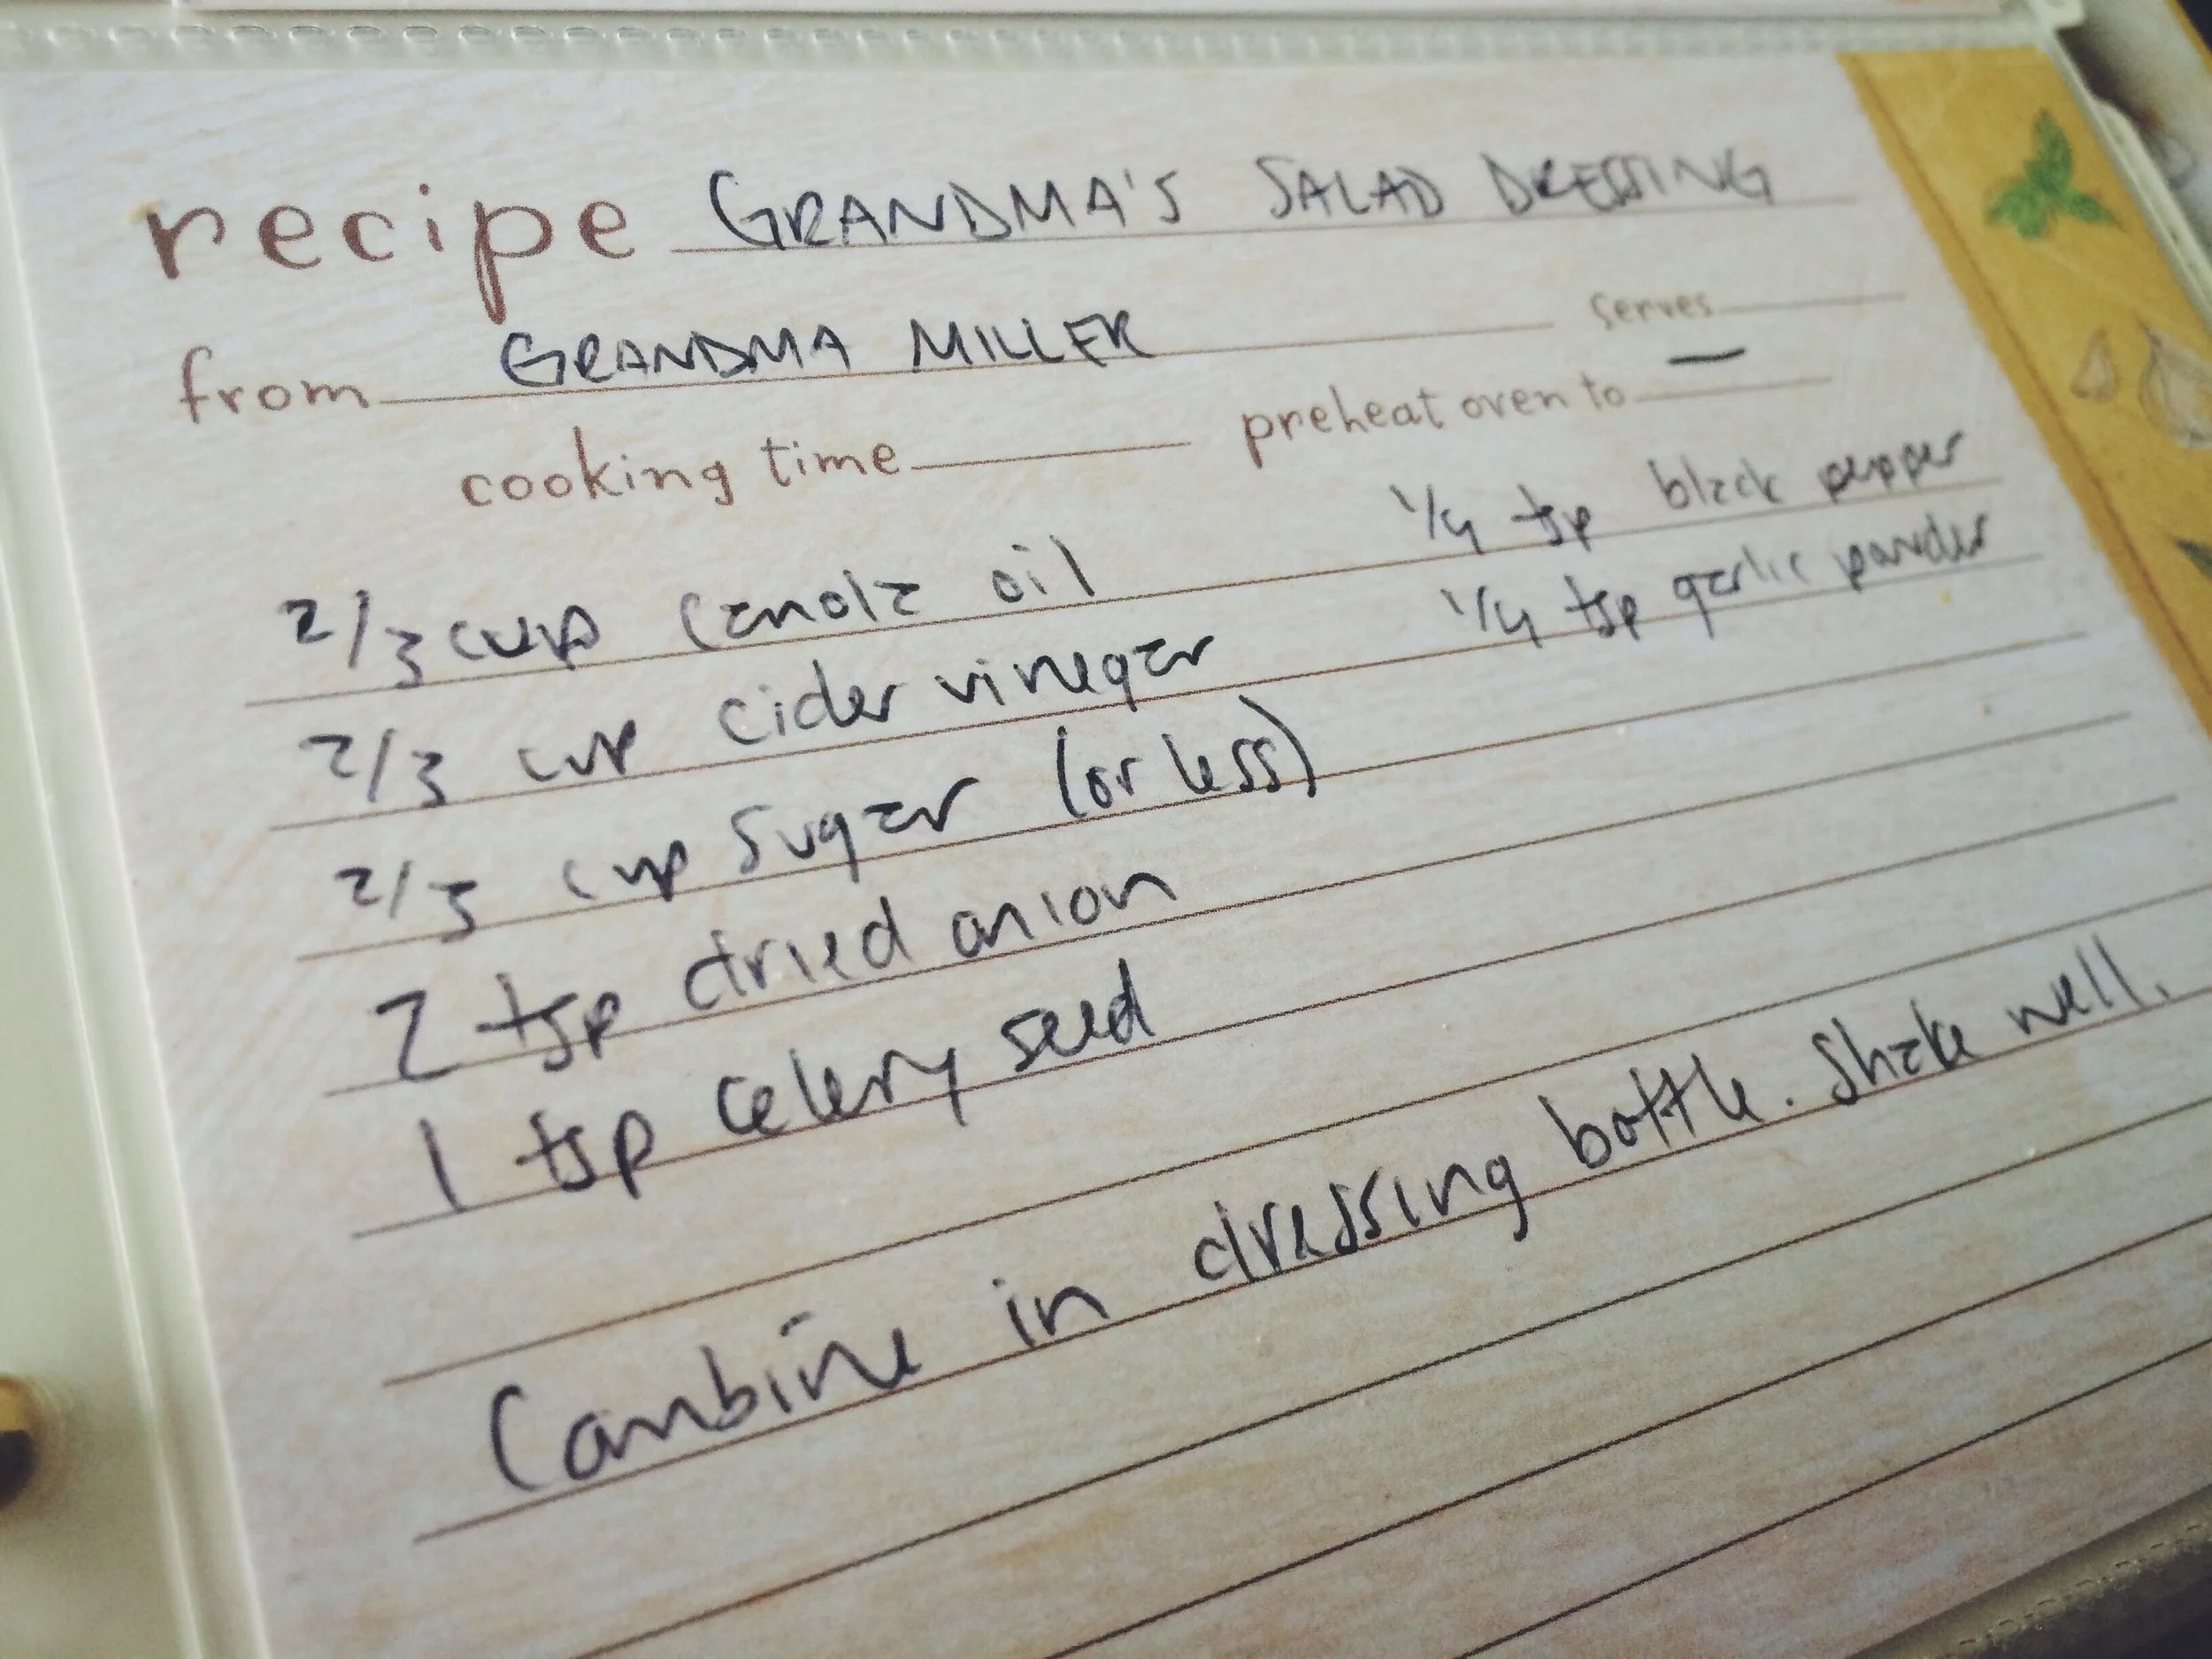 recipe GRANDMA'S SALAD DRESSING
from GRANDMA MILLER serves
cooking time preheat oven to —
2/3 cup canola oil
2/3 cup cider vinegar
2/3 cup sugar (or less)
2 tsp dried onion
1 tsp celery seed
1/4 tsp black pepper
1/4 tsp garlic powder
Combine in dressing bottle. Shake well.